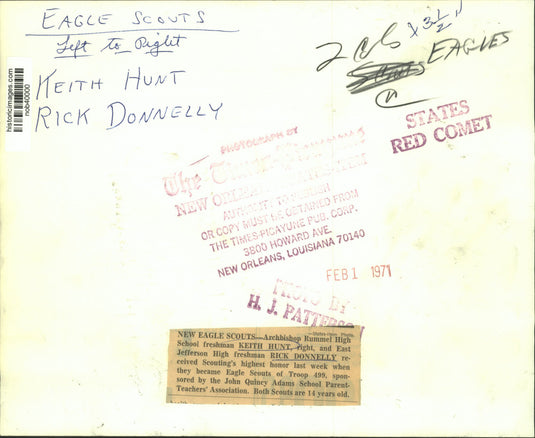 EAGLE SCOUTS
Left to Right
KEITH HUNT
RICK DONNELLY
historicimages.com
2 col x 3 1/2"
EAGLES
STATES
RED COMET
PHOTOGRAPH BY
The Times-Picayune
NEW ORLEANS
OR COPY MUST BE OBTAINED FROM
THE TIMES-PICAYUNE PUB. CORP.
3800 HOWARD AVE.
NEW ORLEANS, LOUISIANA 70140
FEB 1 1971
PHOTO BY
H. J. PATTERSON
NEW EAGLE SCOUTS—Archbishop Rummel High
School freshman KEITH HUNT, right, and East
Jefferson High freshman RICK DONNELLY re-
ceived Scouting's highest honor last week when
they became Eagle Scouts of Troop 499, spon-
sored by the John Quincy Adams School Parent-
Teachers' Association. Both Scouts are 14 years old.